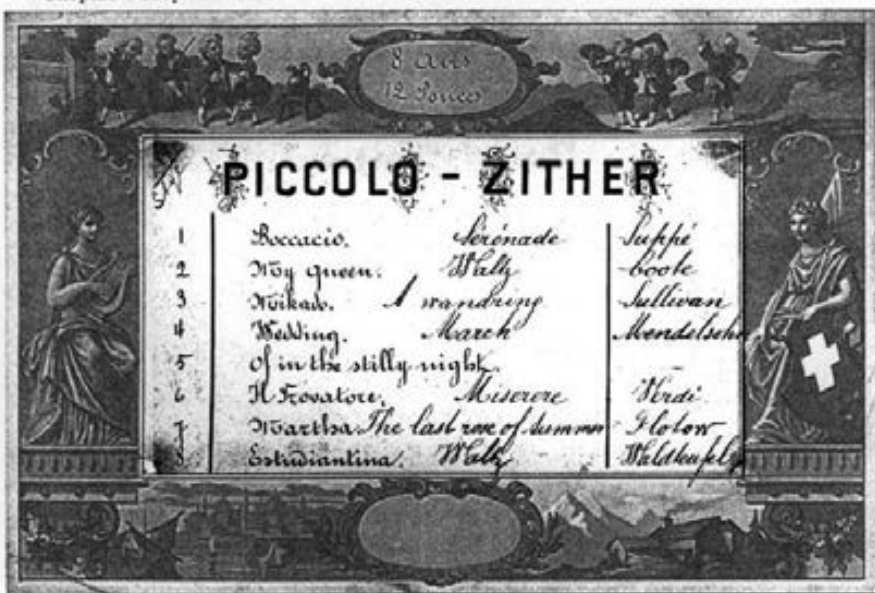 8 Airs
12 Pouces
PICCOLO - ZITHER
1 Boccacio. Sérénade Suppé
2 My queen. Waltz Coote
3 Mikado. A wandring Sullivan
4 Wedding. March Mendelsohn
5 Of in the stilly night.
6 Il Trovatore. Miserere Verdi
7 Martha The last rose of Summer Flotow
8 Estudiantina. Waltz Waldteufel